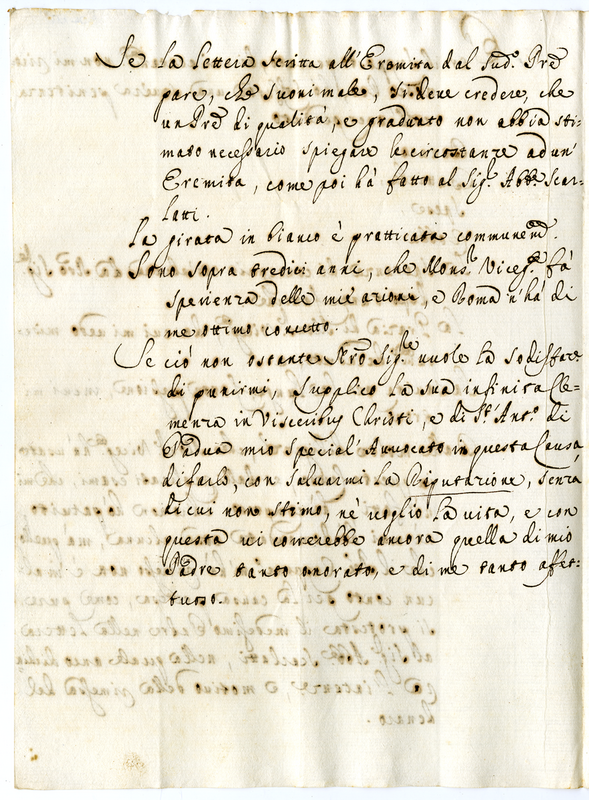 Se la lettera scritta all'Eremita dal sud.º Prẽ
pare, che suoni male, si deve credere, che
un Prẽ di qualità, e graduato non abbia sti-
mato necessario spiegare le circostanze ad un'
Eremita, come poi hà fatto al Sig.r Abb.e Scar-
latti.
La girata in bianco è pratticata communem.
Sono sopra tredici anni, che Mons.r Viceg.te fà
sperienza delle mie azioni, e Roma n'hà di
me ottimo concetto.
Se ciò non ostante Nrõ Sig.re vuole la sodisfaz.e
di punirmi, supplico la sua infinita Cle-
menza in Visceribus Christi, e di S.t' Ant.º di
Padua mio special' Avvocato in questa Causa
di farlo, con salvarmi la Riputazione, senza
di cui non stimo, nè voglio la vita, e con
questa vi correrebbe ancora quella di mio
Padre tanto onorato, e di me tanto affet-
tuoso.